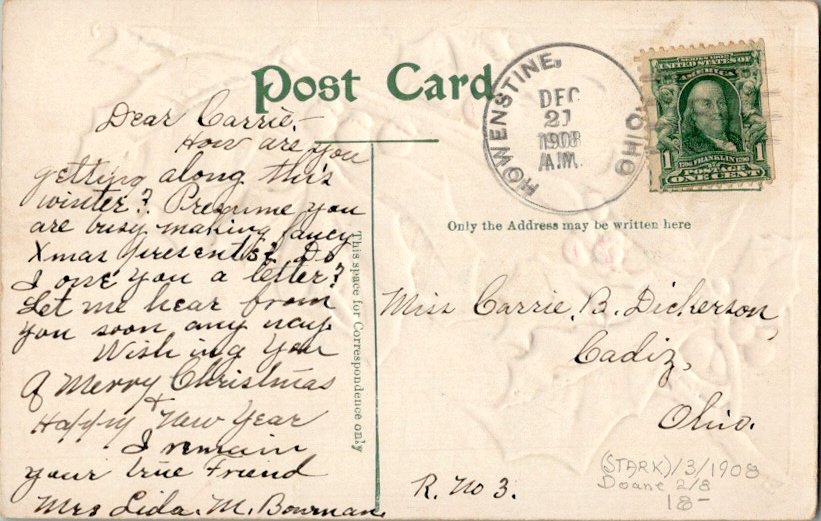 Post Card
HOWENSTINE,
OHIO.
DEC
21
1908
A.M.
SERIES 1902
UNITED STATES OF
AMERICA
1706 FRANKLIN 1790
1 1
POSTAGE
ONE CENT
Dear Carrie,-
How are you
getting along this
winter? Presume you
are busy making fancy
Xmas presents? Do
I owe you a letter?
Let me hear from
you soon any way.
Wishing you
A Merry Christmas
+
Happy New Year
I remain
your true Friend
Mrs Lida. M. Bowman.
This space for Correspondence only
Only the Address may be written here
Miss Carrie, B. Dickerson,
Cadiz,
Ohio.
R. No 3.
(STARK)/3/1908
Doane 2/8
18-